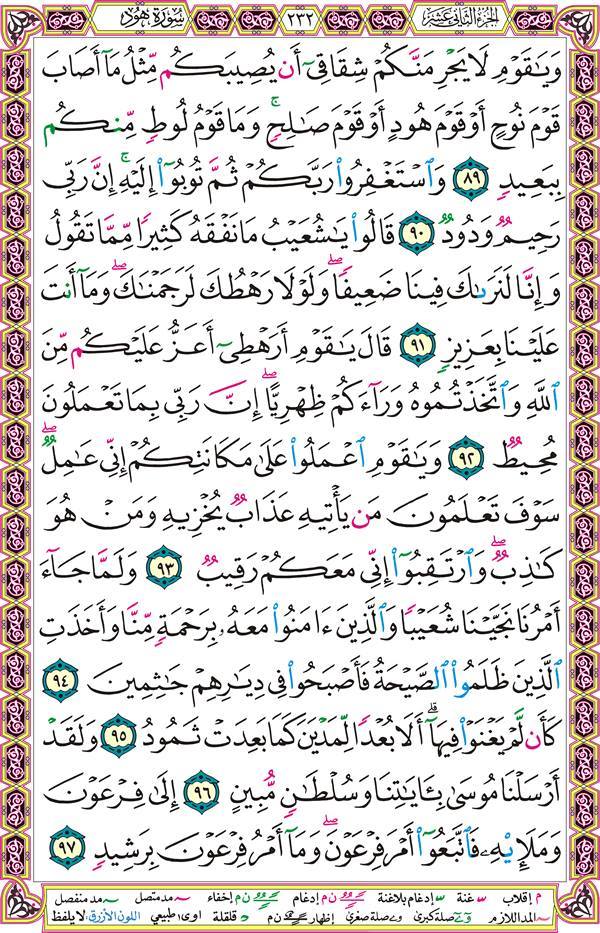 الجزء الثاني عشر ٢٣٢ سورة هود
وَيَـٰقَوْمِ لَا يَجْرِمَنَّكُمْ شِقَاقِىٓ أَن يُصِيبَكُم مِّثْلُ مَآ أَصَابَ
قَوْمَ نُوحٍ أَوْ قَوْمَ هُودٍ أَوْ قَوْمَ صَـٰلِحٍ ۚ وَمَا قَوْمُ لُوطٍ مِّنكُم
بِبَعِيدٍ ٨٩ وَٱسْتَغْفِرُوا۟ رَبَّكُمْ ثُمَّ تُوبُوٓا۟ إِلَيْهِ ۚ إِنَّ رَبِّى
رَحِيمٌ وَدُودٌ ٩٠ قَالُوا۟ يَـٰشُعَيْبُ مَا نَفْقَهُ كَثِيرًا مِّمَّا تَقُولُ
وَإِنَّا لَنَرَىٰكَ فِينَا ضَعِيفًا ۖ وَلَوْلَا رَهْطُكَ لَرَجَمْنَـٰكَ ۖ وَمَآ أَنتَ
عَلَيْنَا بِعَزِيزٍ ٩١ قَالَ يَـٰقَوْمِ أَرَهْطِىٓ أَعَزُّ عَلَيْكُم مِّنَ
ٱللَّهِ وَٱتَّخَذْتُمُوهُ وَرَآءَكُمْ ظِهْرِيًّا ۖ إِنَّ رَبِّى بِمَا تَعْمَلُونَ
مُحِيطٌ ٩٢ وَيَـٰقَوْمِ ٱعْمَلُوا۟ عَلَىٰ مَكَانَتِكُمْ إِنِّى عَـٰمِلٌ ۖ
سَوْفَ تَعْلَمُونَ مَن يَأْتِيهِ عَذَابٌ يُخْزِيهِ وَمَنْ هُوَ
كَـٰذِبٌ ۖ وَٱرْتَقِبُوٓا۟ إِنِّى مَعَكُمْ رَقِيبٌ ٩٣ وَلَمَّا جَآءَ
أَمْرُنَا نَجَّيْنَا شُعَيْبًا وَٱلَّذِينَ ءَامَنُوا۟ مَعَهُۥ بِرَحْمَةٍ مِّنَّا وَأَخَذَتِ
ٱلَّذِينَ ظَلَمُوا۟ ٱلصَّيْحَةُ فَأَصْبَحُوا۟ فِى دِيَـٰرِهِمْ جَـٰثِمِينَ ٩٤
كَأَن لَّمْ يَغْنَوْا۟ فِيهَآ ۗ أَلَا بُعْدًا لِّمَدْيَنَ كَمَا بَعِدَتْ ثَمُودُ ٩٥ وَلَقَدْ
أَرْسَلْنَا مُوسَىٰ بِـَٔايَـٰتِنَا وَسُلْطَـٰنٍ مُّبِينٍ ٩٦ إِلَىٰ فِرْعَوْنَ
وَمَلَإِيْهِۦ فَٱتَّبَعُوٓا۟ أَمْرَ فِرْعَوْنَ ۖ وَمَآ أَمْرُ فِرْعَوْنَ بِرَشِيدٍ ٩٧
م إقلاب غنة إدغام بلاغنة ن م إدغام ن م إخفاء مد متصل مد منفصل
المد اللازم صلة كبرى صلة صغرى إظهار ن م قلقلة اوى طبيعي اللون الأزرق: لا يلفظ